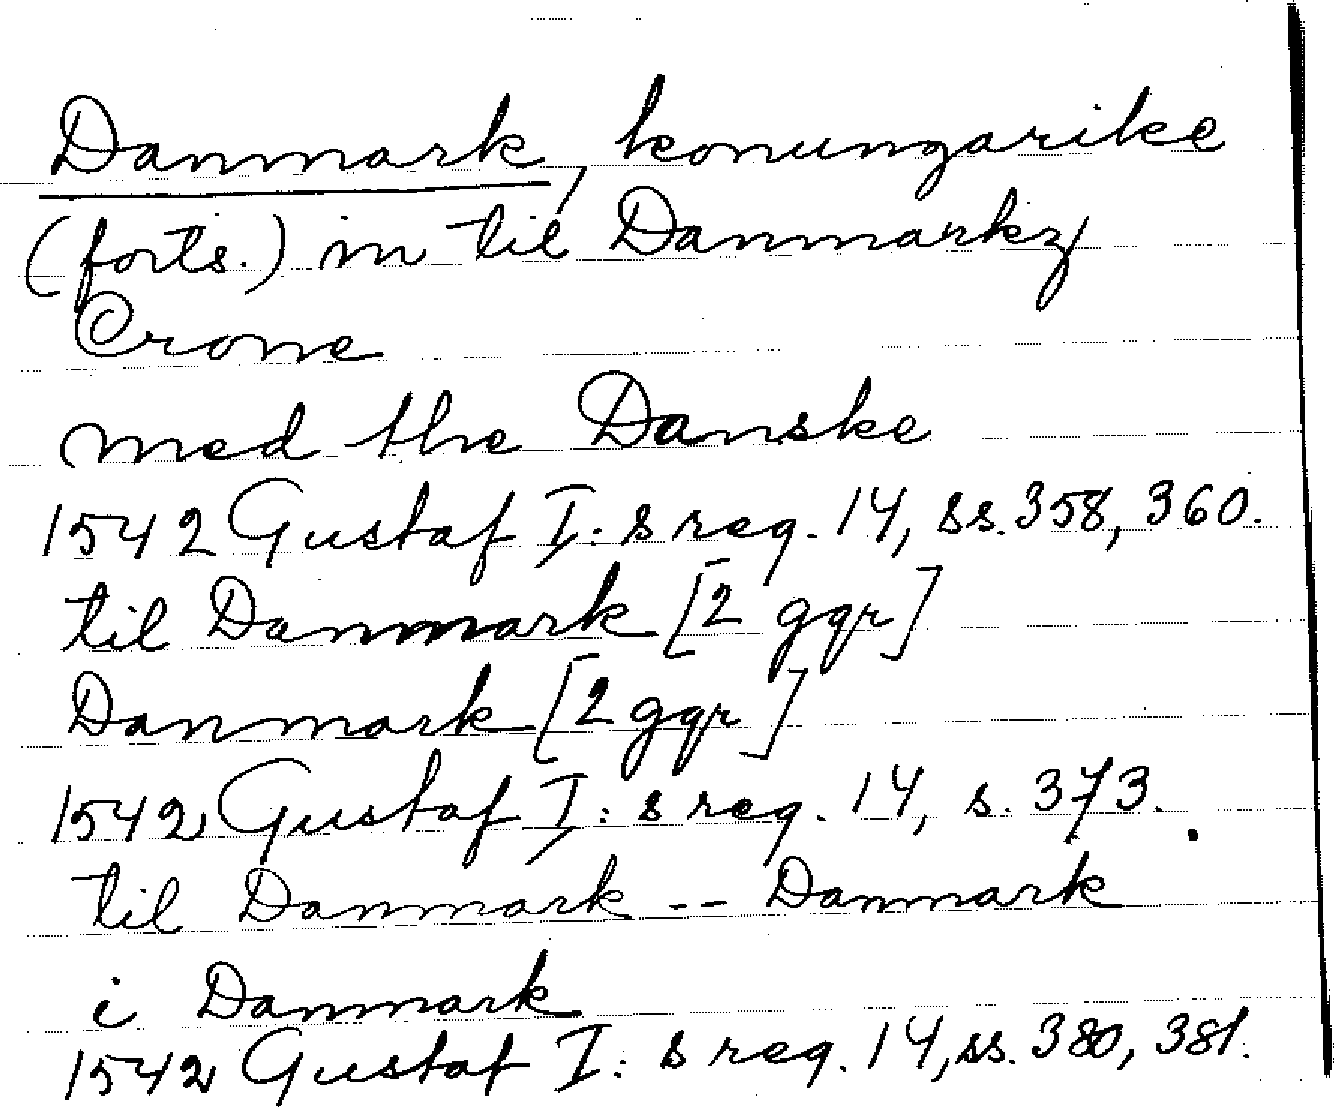 Danmark, konungarike
(forts.) in til Danmarkz
Crone
med the Danske
1542 Gustaf I:s reg. 14, ss. 358, 360.
til Danmark [2 ggr]
Danmark [2 ggr]
1542, Gustaf I:s reg. 14, s. 373.
til Danmark -- Danmark
i Danmark
1542 Gustaf I:s reg. 14, ss. 380, 381.